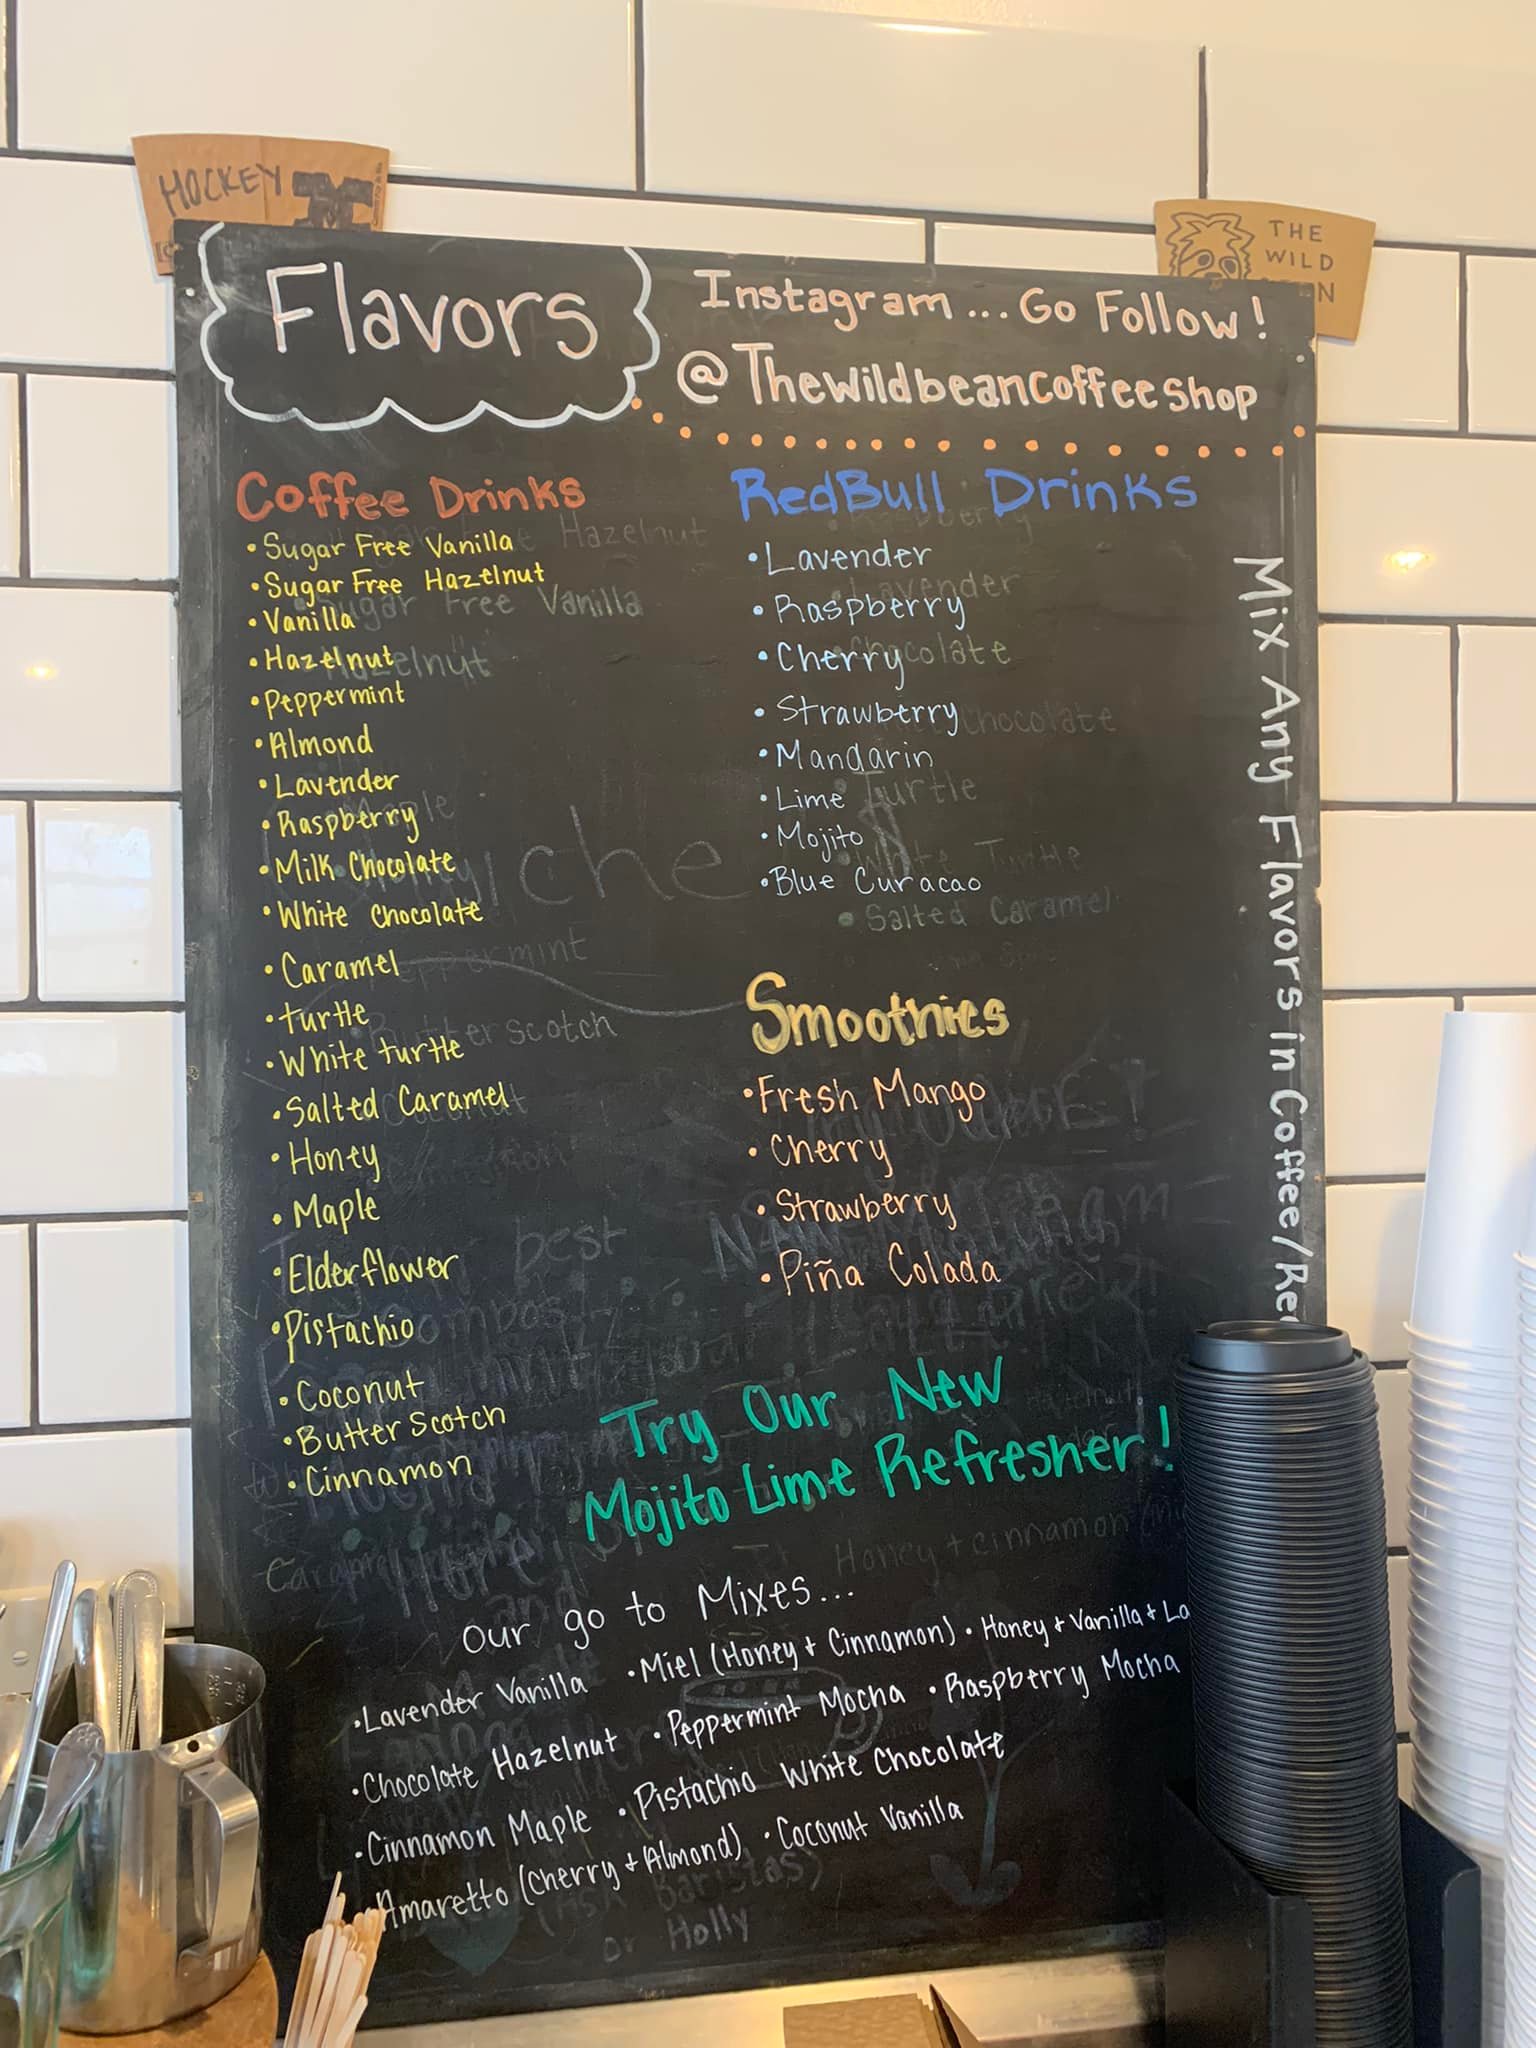 HOCKEY
THE
WILD
Flavors
Instagram... Go Follow!
@Thewildbeancoffeeshop
Coffee Drinks
• Sugar Free Vanilla
• Sugar Free Hazelnut
• Vanilla
• Hazelnut
• Peppermint
• Almond
• Lavender
• Raspberry
• Milk Chocolate
• White Chocolate
• Caramel
• turtle
• White turtle
• Salted Caramel
• Honey
• Maple
• Elderflower
• Pistachio
• Coconut
• Butter Scotch
• Cinnamon
RedBull Drinks
• Lavender
• Raspberry
• Cherry
• Strawberry
• Mandarin
• Lime
• Mojito
• Blue Curacao
Smoothies
• Fresh Mango
• Cherry
• Strawberry
• Piña Colada
Mix Any Flavors in Coffee/Re
Try Our New
Mojito Lime Refresher!
our go to Mixes...
• Lavender Vanilla • Miel (Honey + Cinnamon) • Honey + Vanilla + La
• Chocolate Hazelnut • Peppermint Mocha • Raspberry Mocha
• Cinnamon Maple • Pistachio White Chocolate
• Amaretto (Cherry + Almond) • Coconut Vanilla